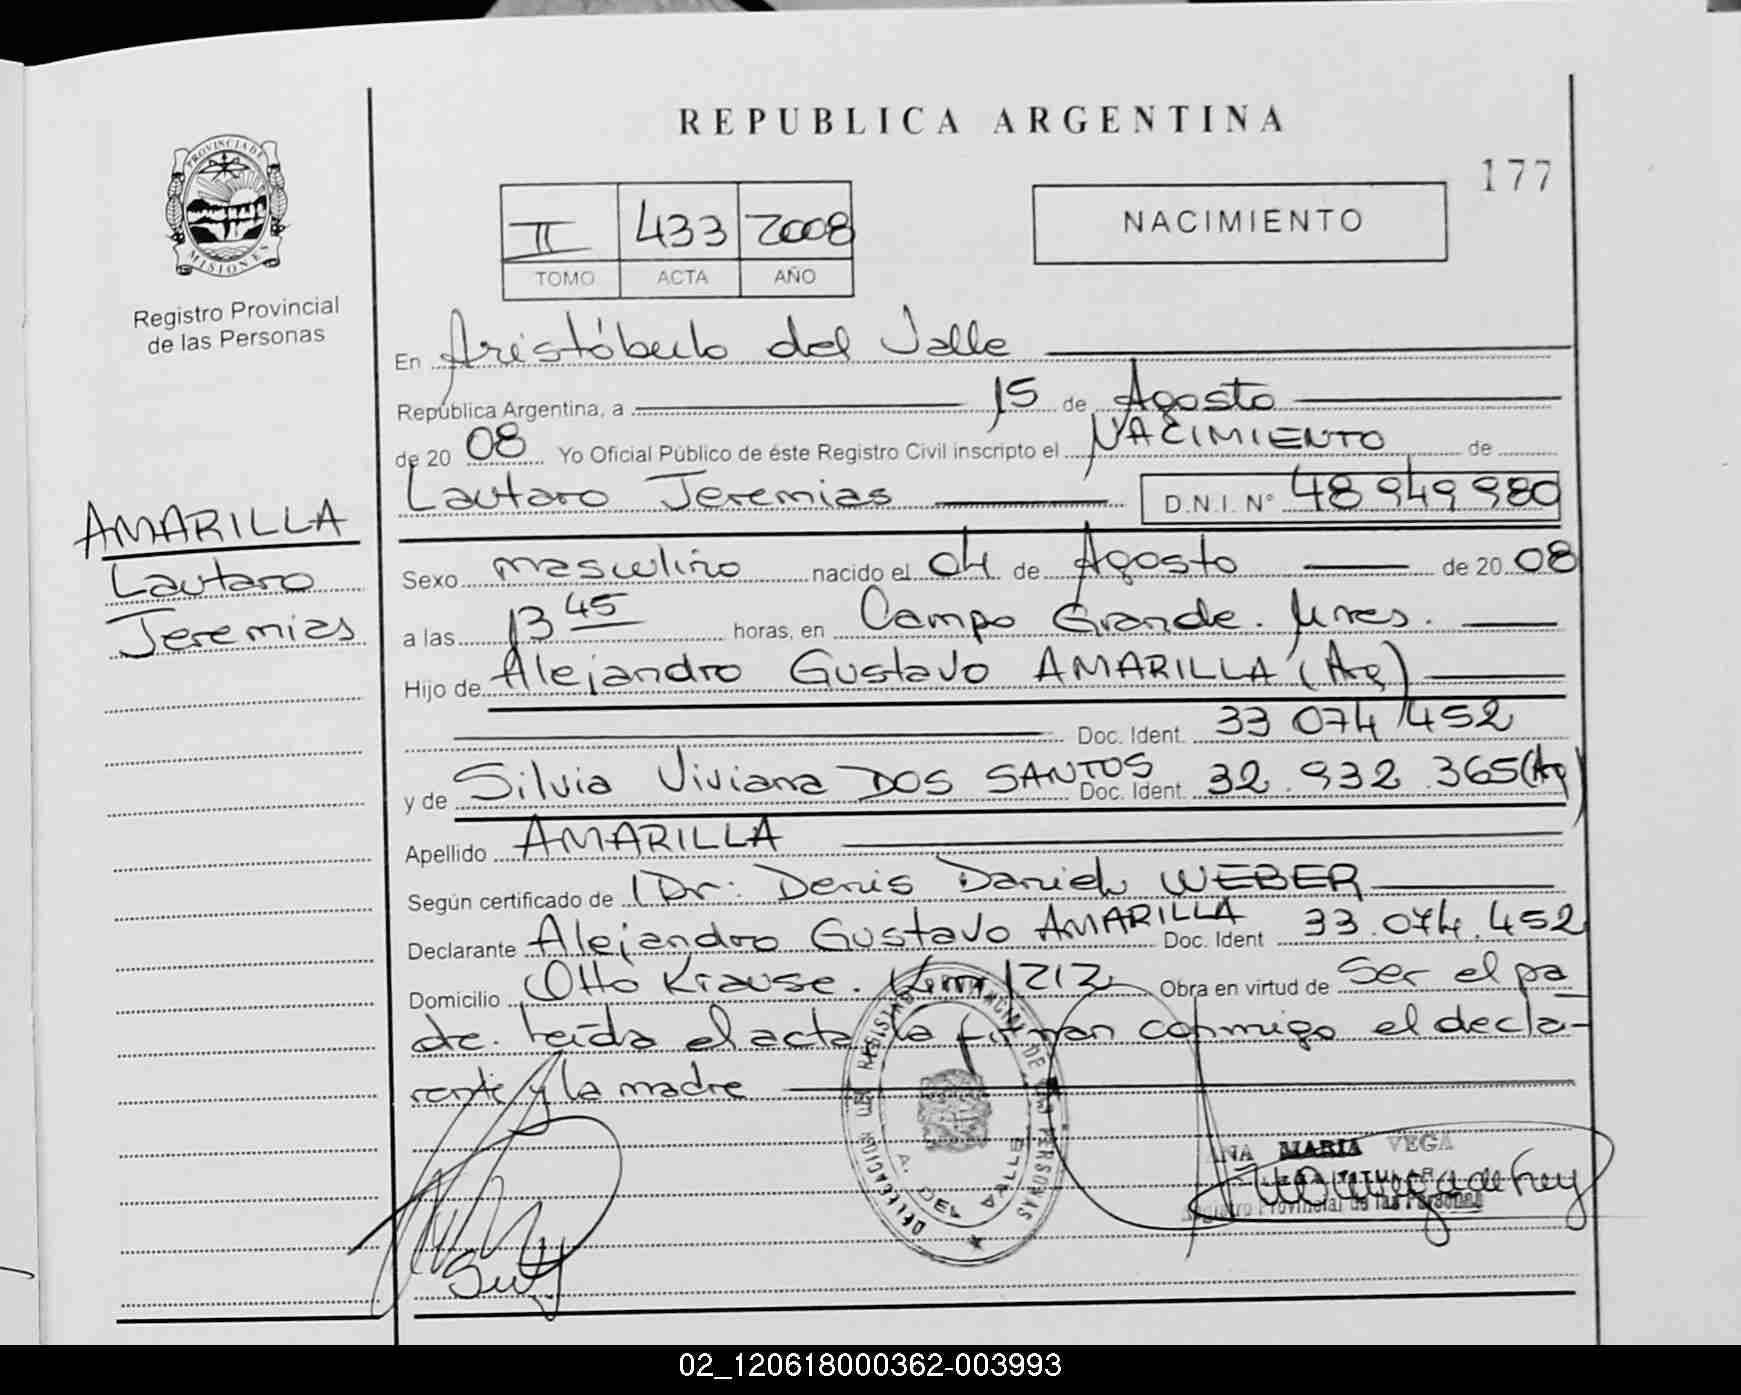 REPUBLICA ARGENTINA
177
PROVINCIA DE
MISIONES
Registro Provincial
de las Personas
II 433 2008
TOMO ACTA AÑO
NACIMIENTO
En Aristóbulo del Valle
República Argentina, a 15 de Agosto
de 20 08 Yo Oficial Público de éste Registro Civil inscripto el NACIMIENTO de
Lautaro Jeremias D.N.I. Nº 48 949 980
AMARILLA
Lautaro
Jeremias
Sexo masculino nacido el 04 de Agosto de 20 08
a las 13 45 horas, en Campo Grande. Mnes.
Hijo de Alejandro Gustavo AMARILLA (Arg)
Doc. Ident. 33 074 452
y de Silvia Viviana DOS SANTOS Doc. Ident. 32.932.365 (Arg)
Apellido AMARILLA
Según certificado de Dr: Denis Daniel WEBER
Declarante Alejandro Gustavo AMARILLA Doc. Ident 33.074.452
Domicilio Otto Krause. Km 1212 Obra en virtud de Ser el pa
dre. Leída el acta la firman conmigo el decla-
rante y la madre
DE LAS PERSONAS
DELEGACION
A. DEL VALLE
ANA MARIA VEGA
TITULAR
Registro Provincial de las Personas
02_120618000362-003993